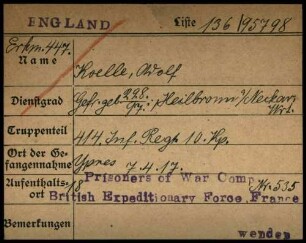 ENGLAND Liste 136/95798
Erkm. 447.
Name Koelle, Adolf
Dienstgrad Gefr. geb. 22.8.97. Heilbronn/Neckar
Truppenteil 414. Inf. Regt. 10. Kp.
Ort der Gefangennahme Ypres 7.4.17.
Aufenthaltsort 18 Prisoners of War Comp Nr. 535
British Expeditionary Force, France
Bemerkungen
wenden